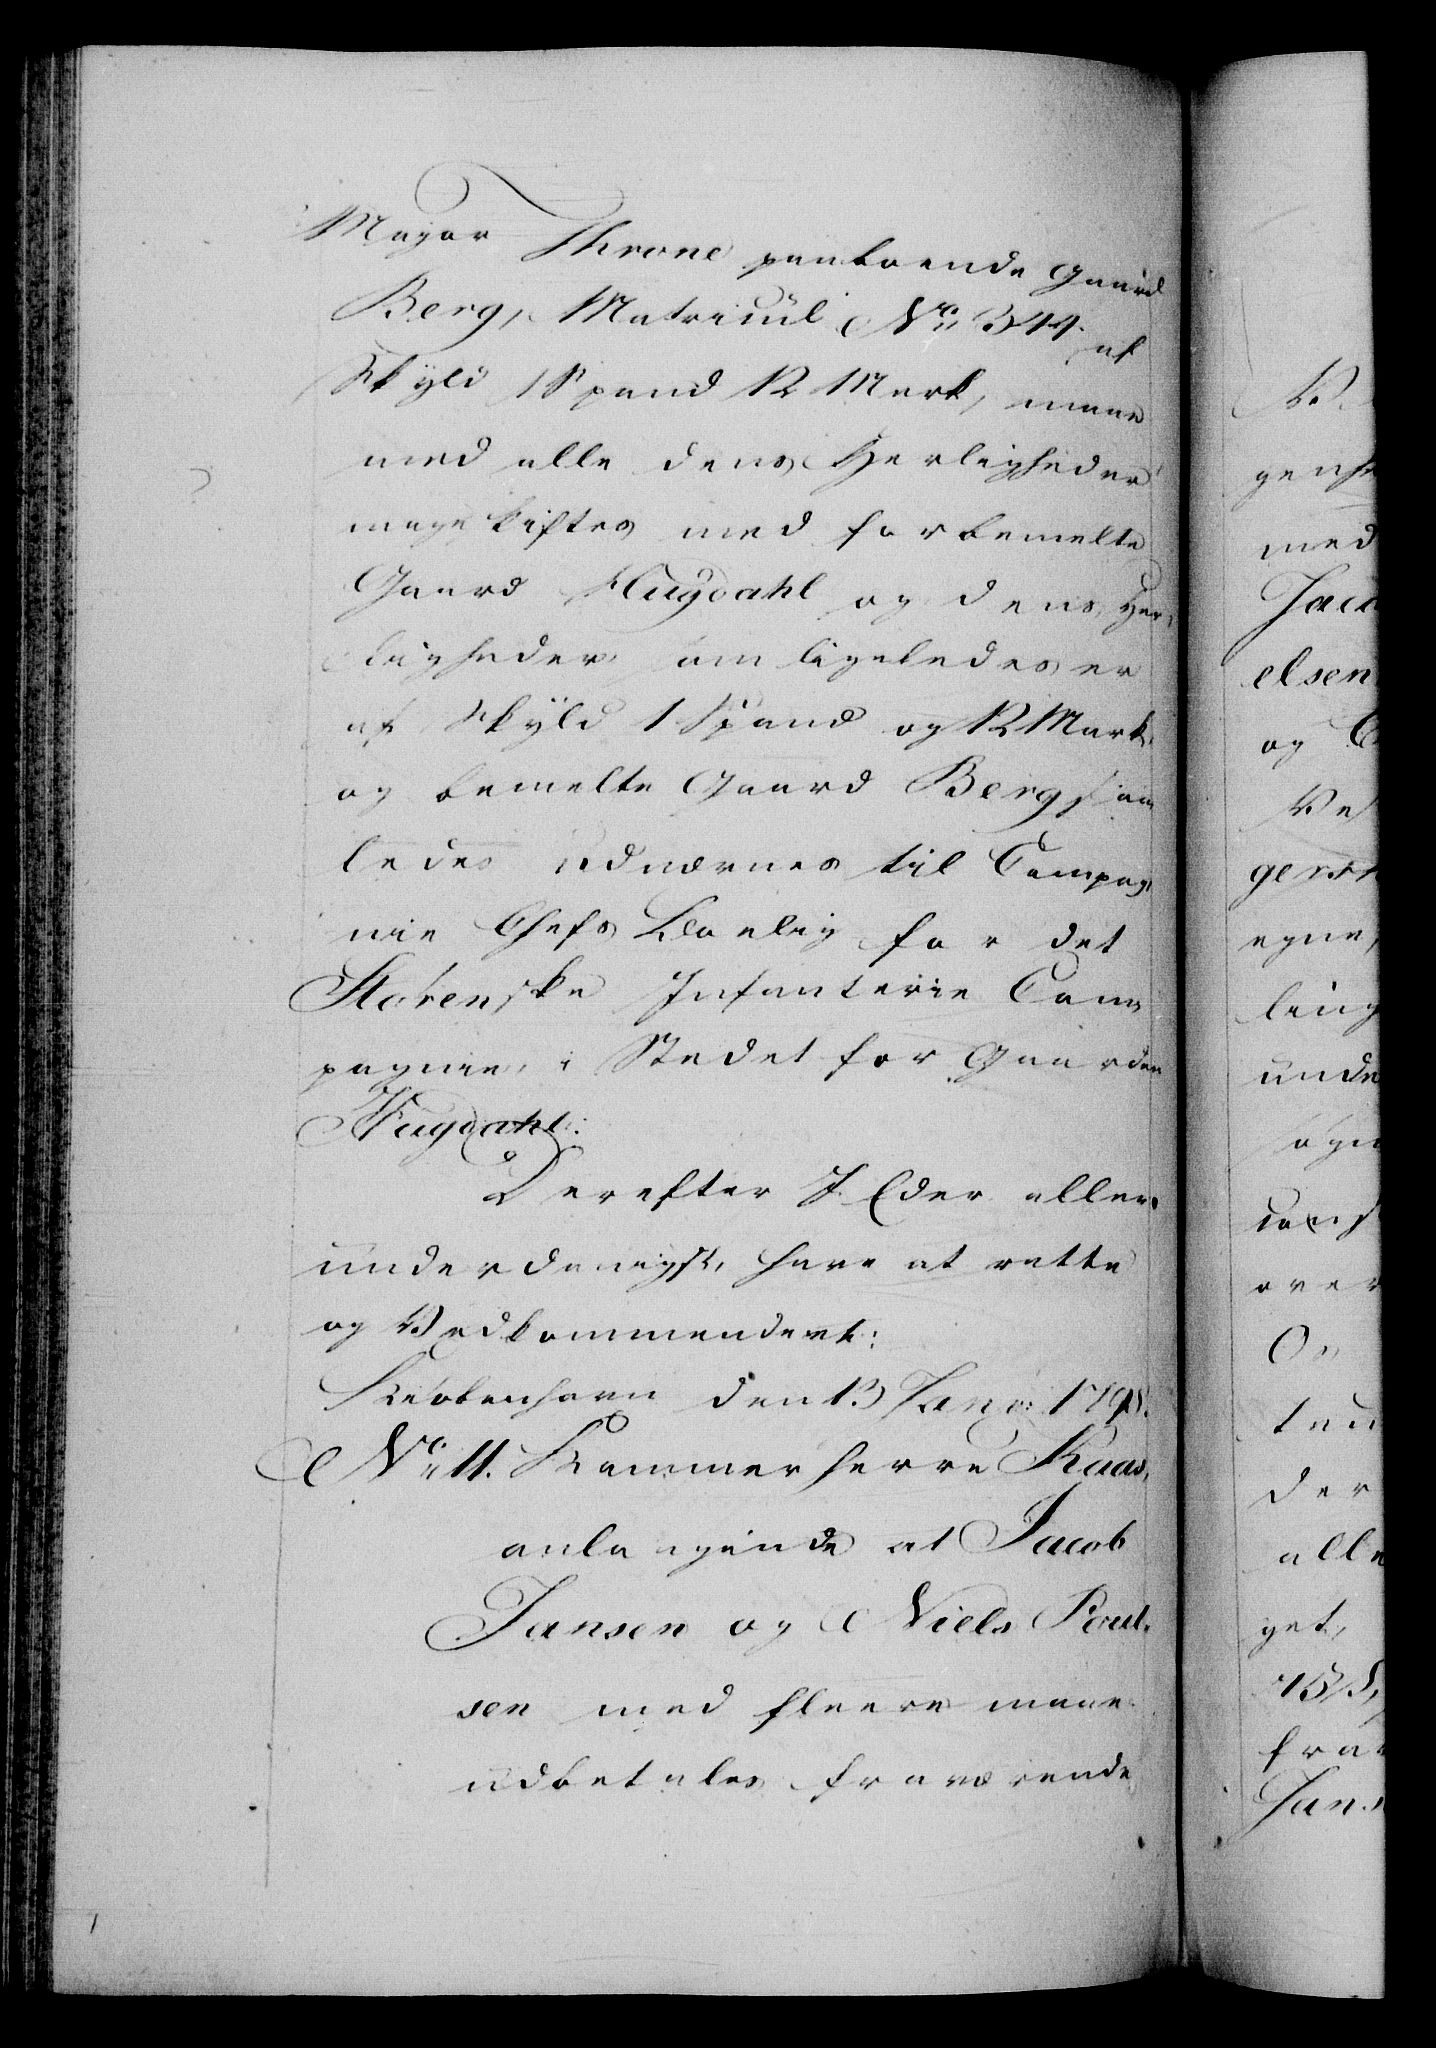 Major Throne paaboende Gaard
Berg, Matricul No 344. af
Skyld 1 Spand 12 Mark, maae
med alle dens Herligheder
mageskiftes med forbemelte
Gaard Hugdahl og dens Her-
ligheder som ligeledes er
af Skyld 1 Spand og 12 Mark
og bemelte Gaard Berg saa-
ledes udnævnes til Compag-
nie Chefs Bolig for det
Størenske Infanterie Com-
pagnie, i Stedet for Gaarden
Hugdahl.
Derefter I Eder aller-
underdanigst have at rette
og Vedkommende
Kiøbenhavn den 13 Jan: 1798.
No 11. Kammerherre Kaas,
anlangende at Jacob
Jansen og Niels Poul-
sen med fleere maae
udbetales fraværende
gensk
med
Jaco
elsen
og
egne,
ling
unde
over
der
alle
get,
fra
Jans